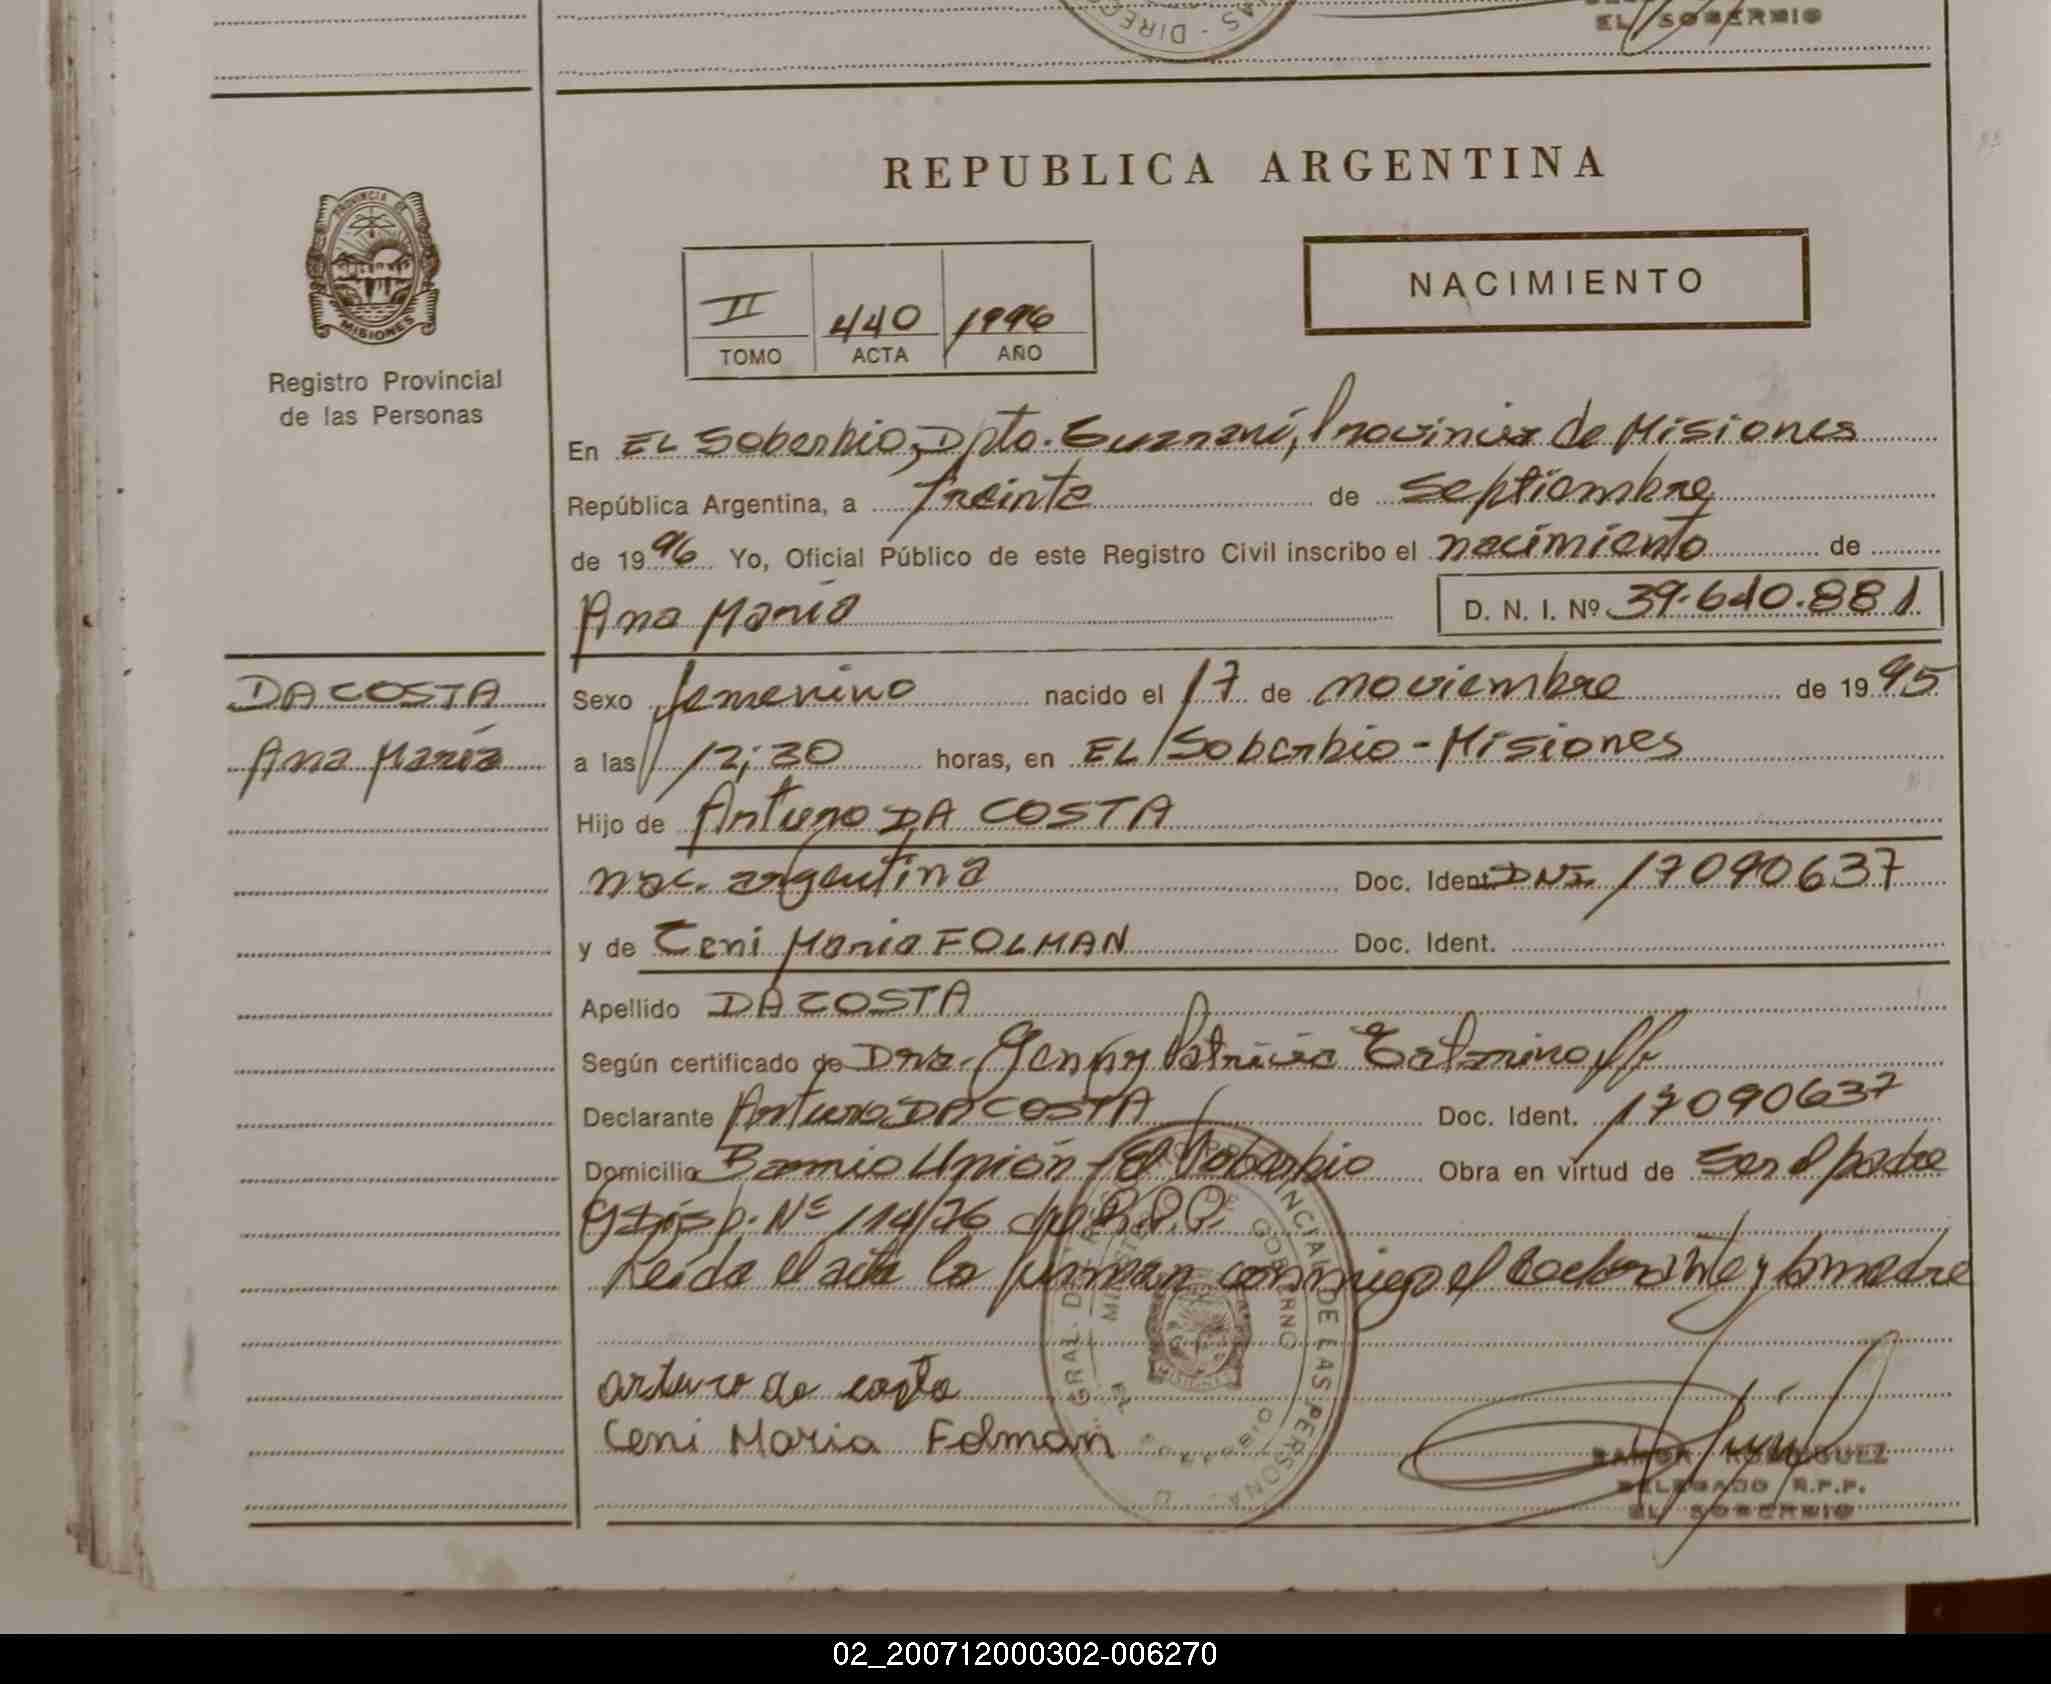 EL SOBERBIO
REPUBLICA ARGENTINA
PROVINCIA DE
MISIONES
Registro Provincial
de las Personas
II 440 1996
TOMO ACTA AÑO
NACIMIENTO
En EL Soberbio, Dpto. Guaraní, Provincia de Misiones
República Argentina, a treinta de septiembre
de 1996 Yo, Oficial Público de este Registro Civil inscribo el nacimiento de
Ana María D. N. I. Nº 39.640.881
DA COSTA
Ana María
Sexo femenino nacido el 17 de noviembre de 1995
a las 12;30 horas, en EL Soberbio - Misiones
Hijo de Arturo DA COSTA
nac. argentina Doc. Ident. DNI 17090637
y de Ceni Maria FOLMAN Doc. Ident.
Apellido DA COSTA
Según certificado de Dra. Genny Patricia
Declarante Arturo DA COSTA Doc. Ident. 17090637
Domicilio Barrio Unión - El Soberbio Obra en virtud de Ser el padre
y Disp. Nº 114/76 del R.P.P.
Leida el acta la firman conmigo el declarante y la madre
arturo da costa
Ceni Maria Folman
RAMON RODRIGUEZ
DELEGADO R.P.P.
EL SOBERBIO
02_200712000302-006270